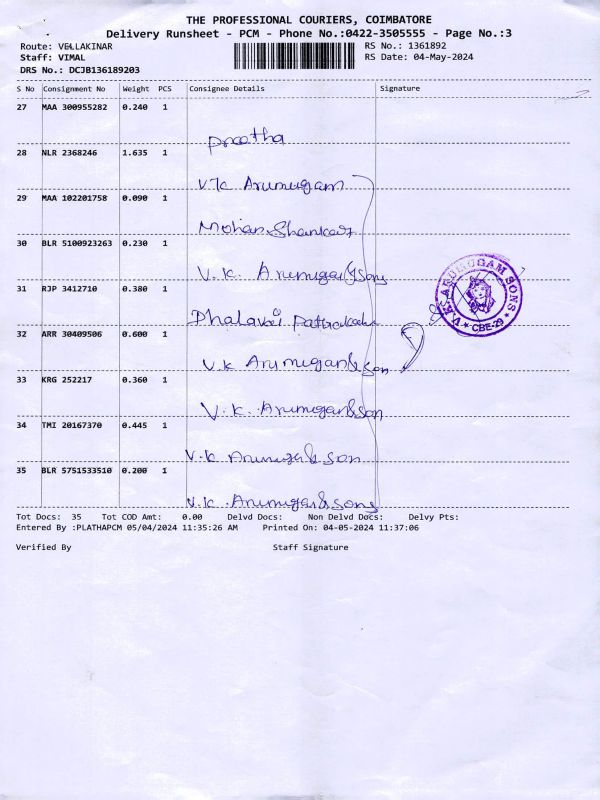 THE PROFESSIONAL COURIERS, COIMBATORE
Delivery Runsheet - PCM - Phone No.:0422-3505555 - Page No.:3
Route: VELLAKINAR RS No.: 1361892
Staff: VIMAL RS Date: 04-May-2024
DRS No.: DCJB136189203
S No Consignment No Weight PCS Consignee Details Signature
27 MAA 300955282 0.240 1
Preetha
28 NLR 2368246 1.635 1
V.K Arumugam
29 MAA 102201758 0.090 1
Mohan Shankar
30 BLR 5100923263 0.230 1
V.K. Arumugam & Sons
31 RJP 3412710 0.380 1
Dhalavai
32 ARR 30409506 0.600 1
V.K Arumugam & Son
33 KRG 252217 0.360 1
V.K. Arumugam & Son
34 TMI 20167370 0.445 1
V.K Arumugam & Son
35 BLR 5751533510 0.200 1
V.K. Arumugam & Sons
V.K. ARUMUGAM SONS
★ CBE-29 ★
Tot Docs: 35 Tot COD Amt: 0.00 Delvd Docs: Non Delvd Docs: Delvy Pts:
Entered By :PLATHAPCM 05/04/2024 11:35:26 AM Printed On: 04-05-2024 11:37:06
Verified By Staff Signature